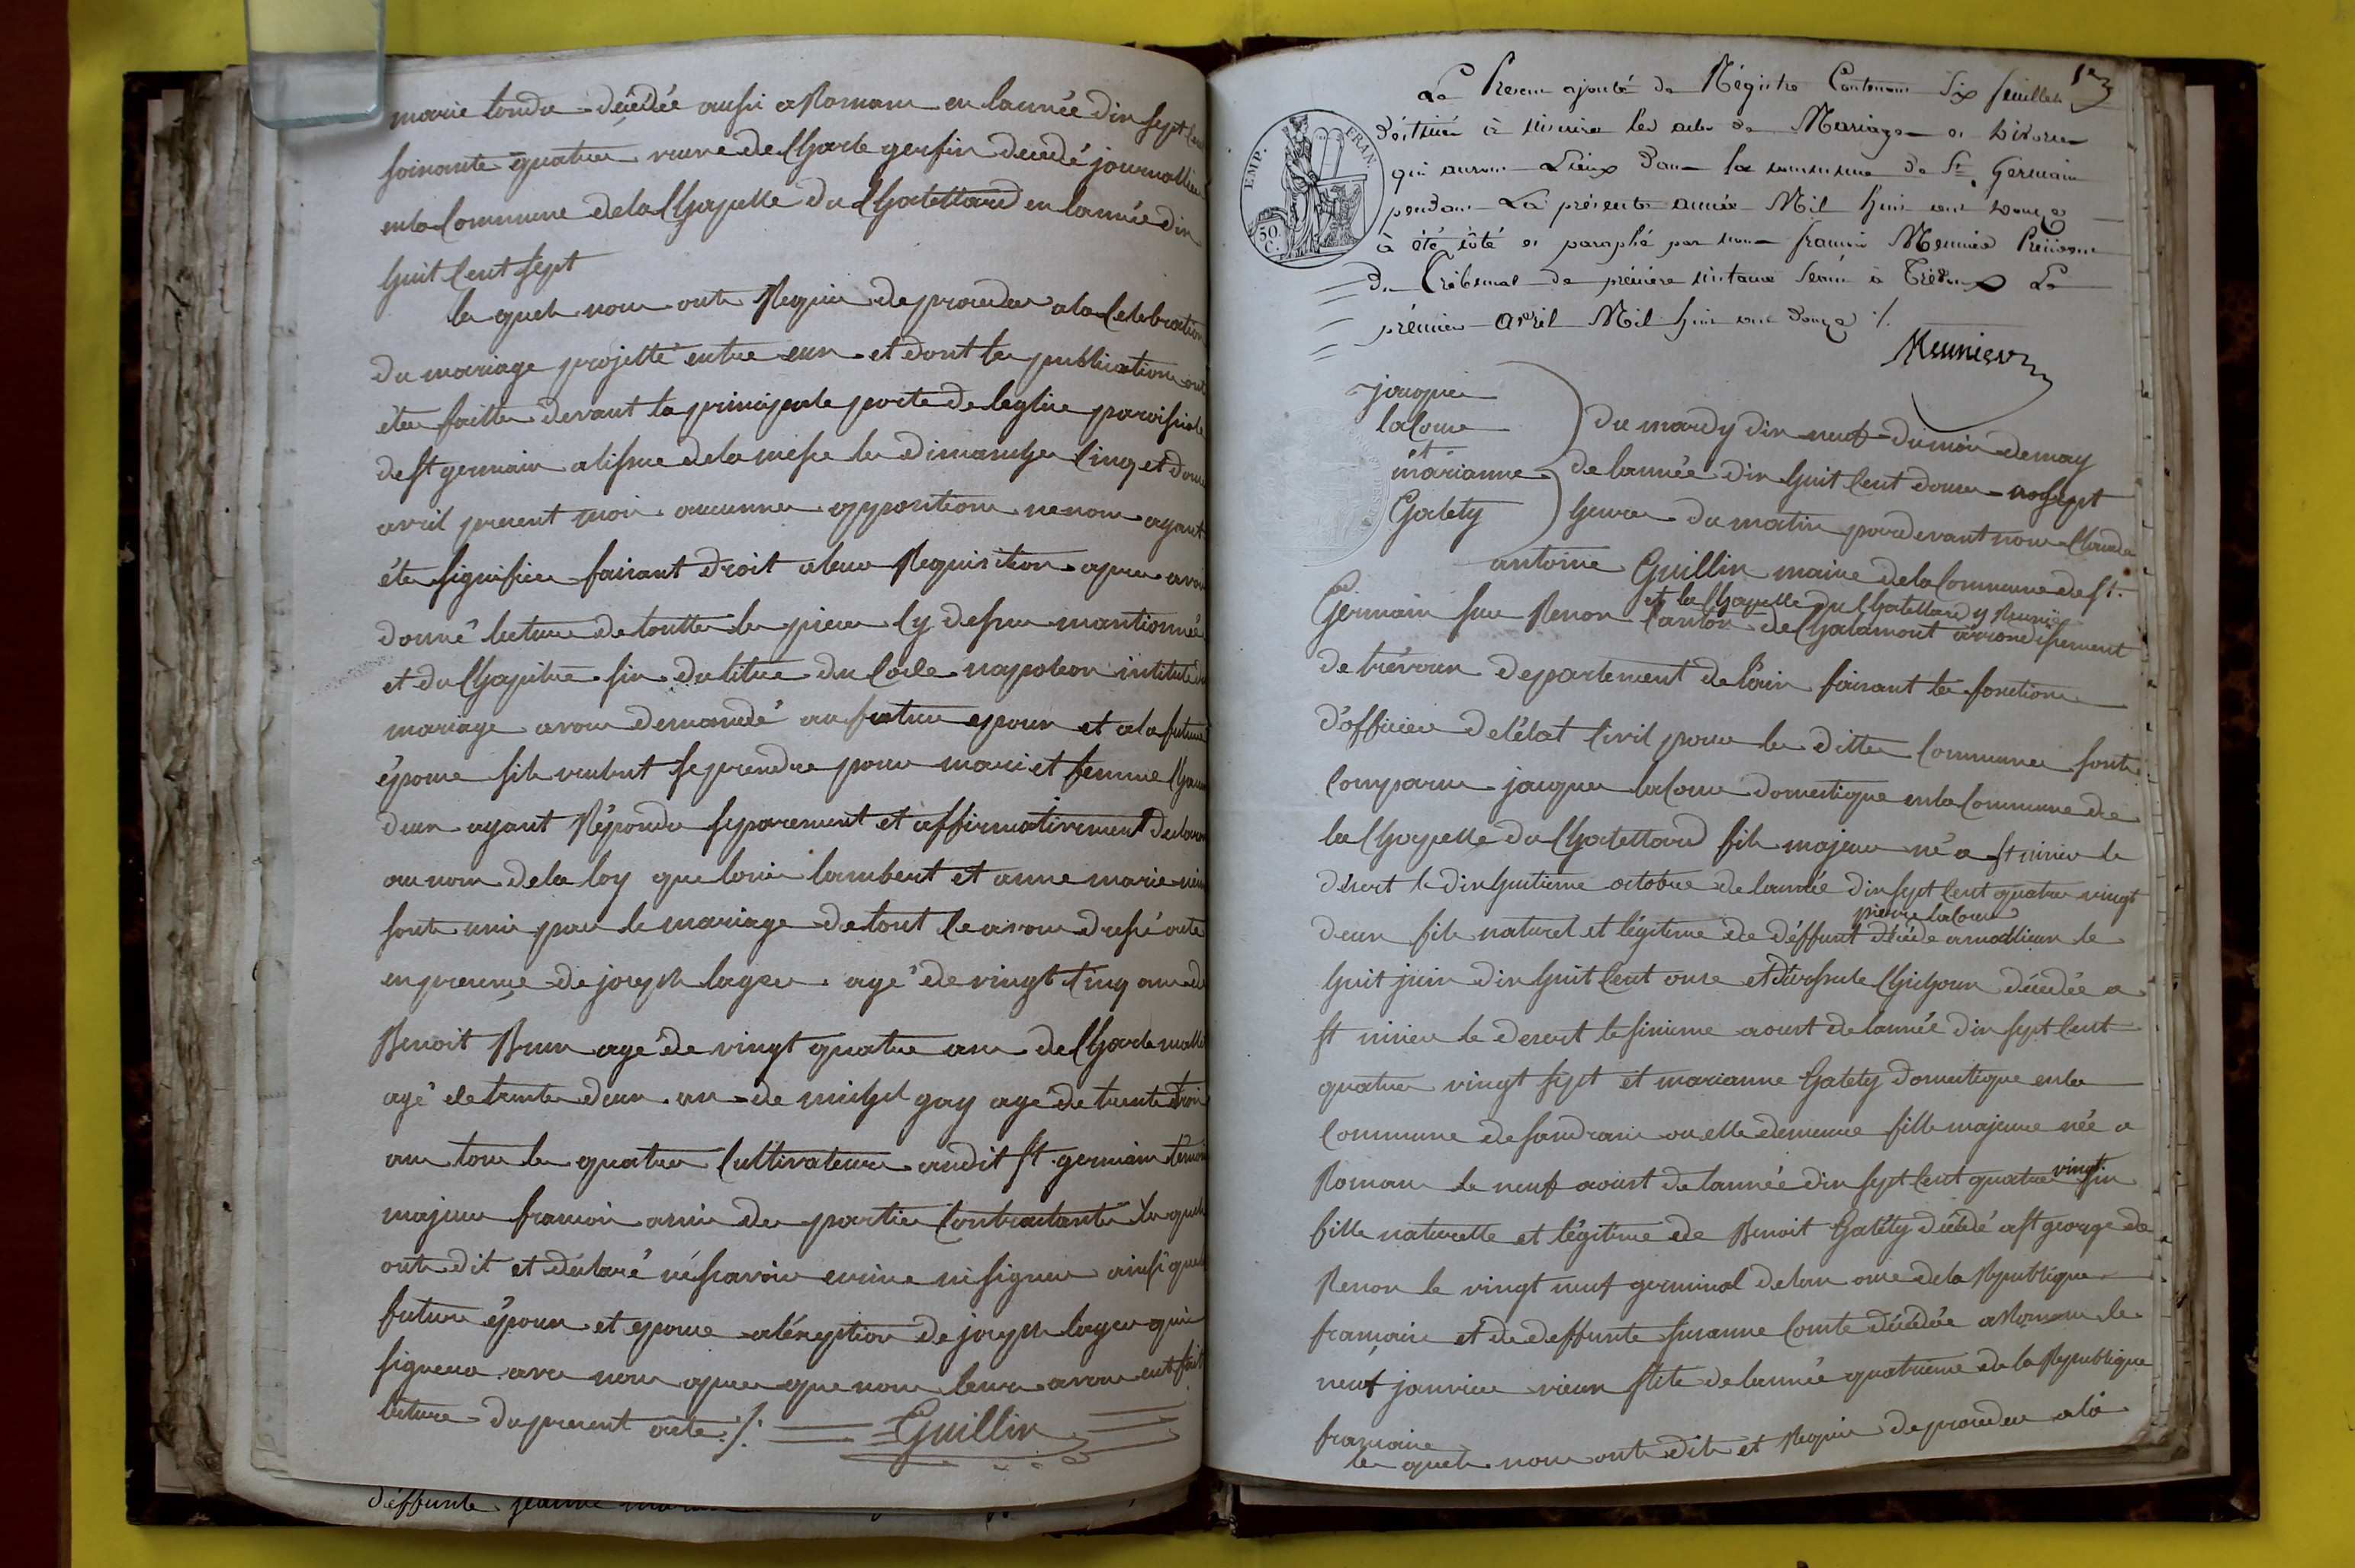 marie tondu décédée aussi a Romans en lannée dix sept cent
soixante quatre veuve de Charle gerfin décédé journallier
en la Commune de la Chapelle du Chatellard en lannée dix
huit Cent sept
les quels nous onts Requis de proceder a la Celebration
du mariage projetté entre eux et dont les publications ont
étés faittes devant la principale porte de leglise paroissiale
de st germain a lissue de la messe les dimanches Cinq et douze
avril present mois aucunnes oppositions ne nous ayant
étés signifiées faisant droit a leur Requisition apres avoir
donné lecture de touttes les pieces Cy dessus mantionnées
et du Chapitre six du titre du Code napoleon intitulé du
mariage avons demandé au futur epoux et a la future
épouse sils veulent se prendre pour mari et femme Chacun
deux ayant Répondu separement et affirmativement declarons
au nom de la loy que louis lambert et anne marie
sonts unis par le mariage de tout Ce avons dressé acte
en presence de joseph layer agé de vingt Cinq ans de
Benoit Brun agé de vingt quatre ans de Charle
agé de trente deux ans de michel gay agé de trente trois
ans tous les quatre Cultivateurs audit st germain temoins
majeurs francois amis des parties Contractantes les quels
onts dit et déclaré ne scavoir ecrire ni signer ainsi que les
futurs époux et epouse a léxeption de joseph layer qui
signera avec nous apres que nous leurs avons eut fait
lecture du present acte ./. Guillin
déffunte jeanne
1er
Le Present ajouté de Régistre Contenant Six feuillets
déstiné à inscrire les actes de Mariage et divorce
qui auront Lieux dans la commune de St. Germain
pendant La présente année Mil huit cent douze
à été côté et paraphé par nous francois Meunier Président
du Tribunal de première instance séant à Trévoux Le
prémier avril Mil huit cent douze ./.
Meunier
EMP. FRAN
50 C.
jacques
laCour
et
marianne
Gatety
du mardy dix neuf du mois de may
de lannée dix huit Cent douze a sept
heures du matin pardevant nous Claude
antoine Guillin maire de la Commune de st.
et la Chapelle du Chatellard y Reunie
Germain sur Renon Canton de Chalamont arrondissement
de trévoux departement de lain faisant les fonctions
d'officier de létat Civil pour les dittes Communes sonts
Comparus jacques laCour domestique en la Commune de
la Chapelle du Chatellard fils majeur né a st nizier le
désert le dix huitieme octobre de lannée dix sept Cent quatre vingt
pierre laCour
deux fils naturel et légitime de déffunt décédé a mollieux le
huit juin dix huit Cent onze et dursule décédée a
st nizier le desert le sixieme aoust de lannée dix sept Cent
quatre vingt sept et marianne Gatety domestique en la
Commune de sandrans ou elle demeure fille majeure née a
vingt
Romans le neuf aoust de lannée dix sept Cent quatre six
fille naturelle et légitime de Benoit Gatéty décédé a st george de
Renon le vingt neuf germinal de lan onze de la Republique
francaise et de deffunte susanne Comte décédée a Romans le
neuf janvier vieux stile de lannée quatrieme de la Republique
francaise
les quels nous onts dit et Requis de proceder a la